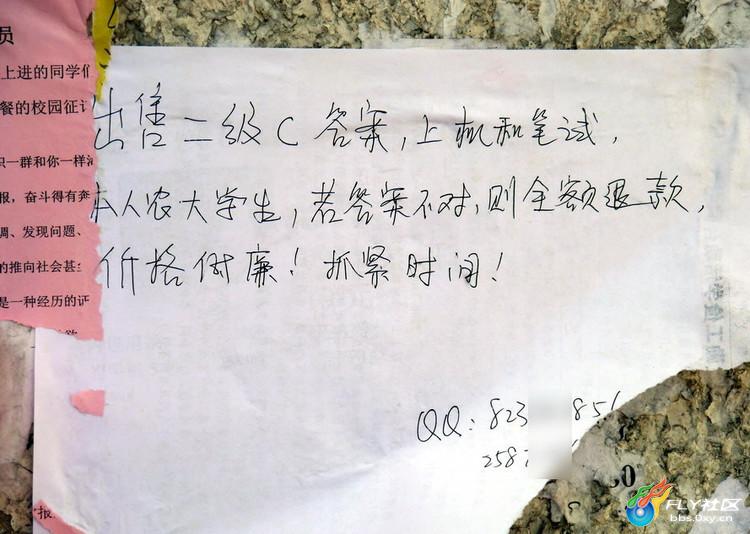 员
上进的同学们
餐的校园征
识一群和你一样
报，奋斗得有奔
调、发现问题、
的推向社会甚
是一种经历的证
出售二级C答案，上机和笔试，
本人农大学生，若答案不对，则全额退款，
价格低廉！抓紧时间！
QQ：823 851
258
报
FLY社区
bbs.0xy.cn